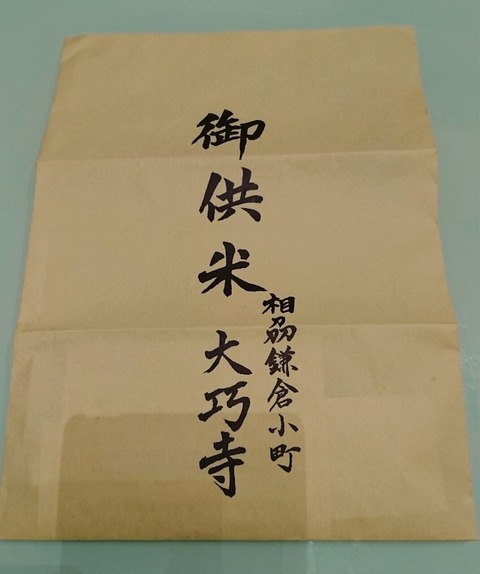 御供米
相刕鎌倉小町
大巧寺